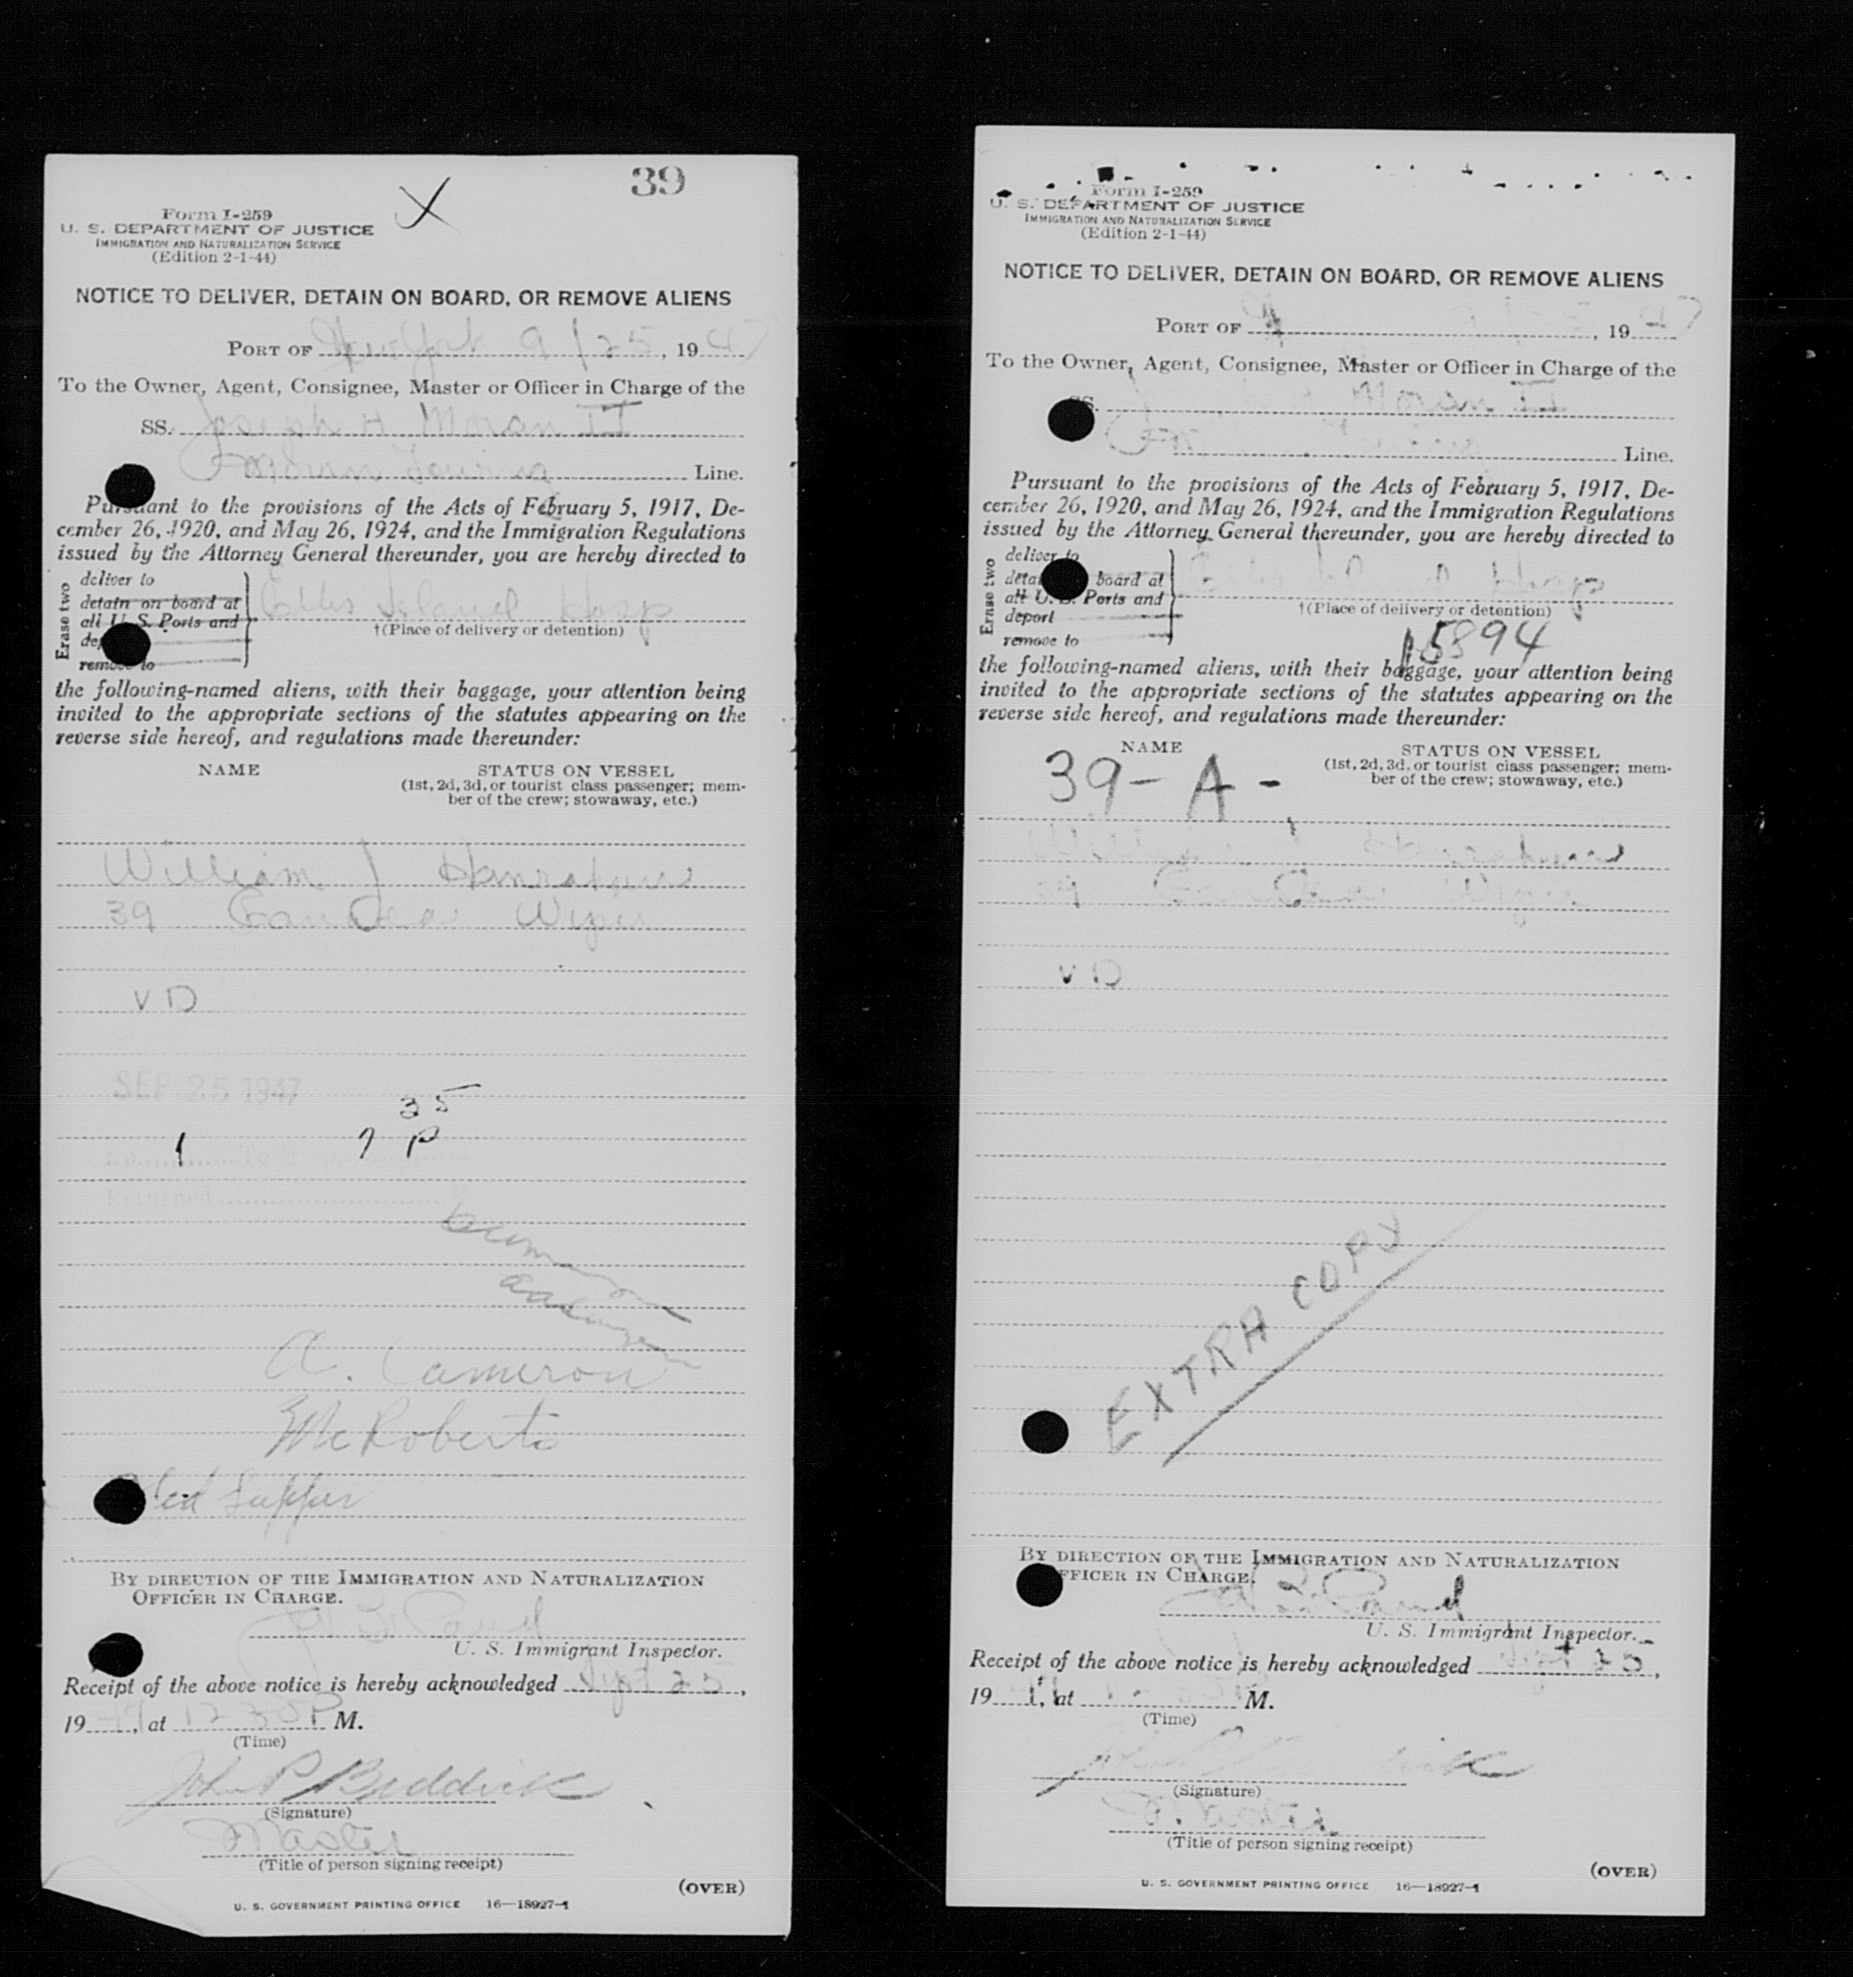 39
X
Form I-259
U. S. DEPARTMENT OF JUSTICE
IMMIGRATION AND NATURALIZATION SERVICE
(Edition 2-1-44)
NOTICE TO DELIVER, DETAIN ON BOARD, OR REMOVE ALIENS
PORT OF New York 9/25, 1947
To the Owner, Agent, Consignee, Master or Officer in Charge of the
SS. Joseph H Moran II
Line.
Pursuant to the provisions of the Acts of February 5, 1917, De-
cember 26, 1920, and May 26, 1924, and the Immigration Regulations
issued by the Attorney General thereunder, you are hereby directed to
Erase two
deliver to
detain on board at
all U. S. Ports and
remove to
Ellis Island Hosp
†(Place of delivery or detention)
the following-named aliens, with their baggage, your attention being
invited to the appropriate sections of the statutes appearing on the
reverse side hereof, and regulations made thereunder:
NAME STATUS ON VESSEL
(1st, 2d, 3d, or tourist class passenger; mem-
ber of the crew; stowaway, etc.)
William J
39 Canada Wiper
VD
SEP 25 1947
35
1 7 P
Returned
A. Cameron
McRoberts
Supper
BY DIRECTION OF THE IMMIGRATION AND NATURALIZATION
OFFICER IN CHARGE.
U. S. Immigrant Inspector.
Receipt of the above notice is hereby acknowledged Sept 25,
1947, at 12 30 P M.
(Time)
John P Beddick
(Signature)
Master
(Title of person signing receipt)
(OVER)
U. S. GOVERNMENT PRINTING OFFICE 16—18927-1
Form I-259
U. S. DEPARTMENT OF JUSTICE
IMMIGRATION AND NATURALIZATION SERVICE
(Edition 2-1-44)
NOTICE TO DELIVER, DETAIN ON BOARD, OR REMOVE ALIENS
PORT OF , 1947
To the Owner, Agent, Consignee, Master or Officer in Charge of the
SS. Moran II
Line.
Pursuant to the provisions of the Acts of February 5, 1917, De-
cember 26, 1920, and May 26, 1924, and the Immigration Regulations
issued by the Attorney General thereunder, you are hereby directed to
Erase two
deliver to
board at
all U. S. Ports and
deport
remove to
Hosp
†(Place of delivery or detention)
15894
the following-named aliens, with their baggage, your attention being
invited to the appropriate sections of the statutes appearing on the
reverse side hereof, and regulations made thereunder:
NAME STATUS ON VESSEL
(1st, 2d, 3d, or tourist class passenger; mem-
ber of the crew; stowaway, etc.)
39-A-
VD
EXTRA COPY
BY DIRECTION OF THE IMMIGRATION AND NATURALIZATION
OFFICER IN CHARGE.
U. S. Immigrant Inspector.
Receipt of the above notice is hereby acknowledged ,
19 , at M.
(Time)
(Signature)
(Title of person signing receipt)
(OVER)
U. S. GOVERNMENT PRINTING OFFICE 16—18927-1